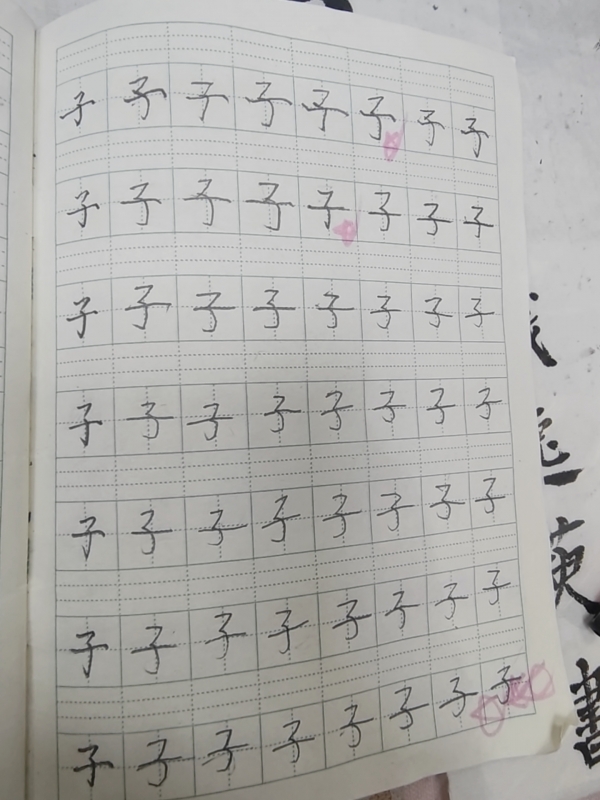 子子子子子子子子
子子子子子子子子
子子子子子子子子
子子子子子子子子
子子子子子子子子
子子子子子子子子
子子子子子子子子
英